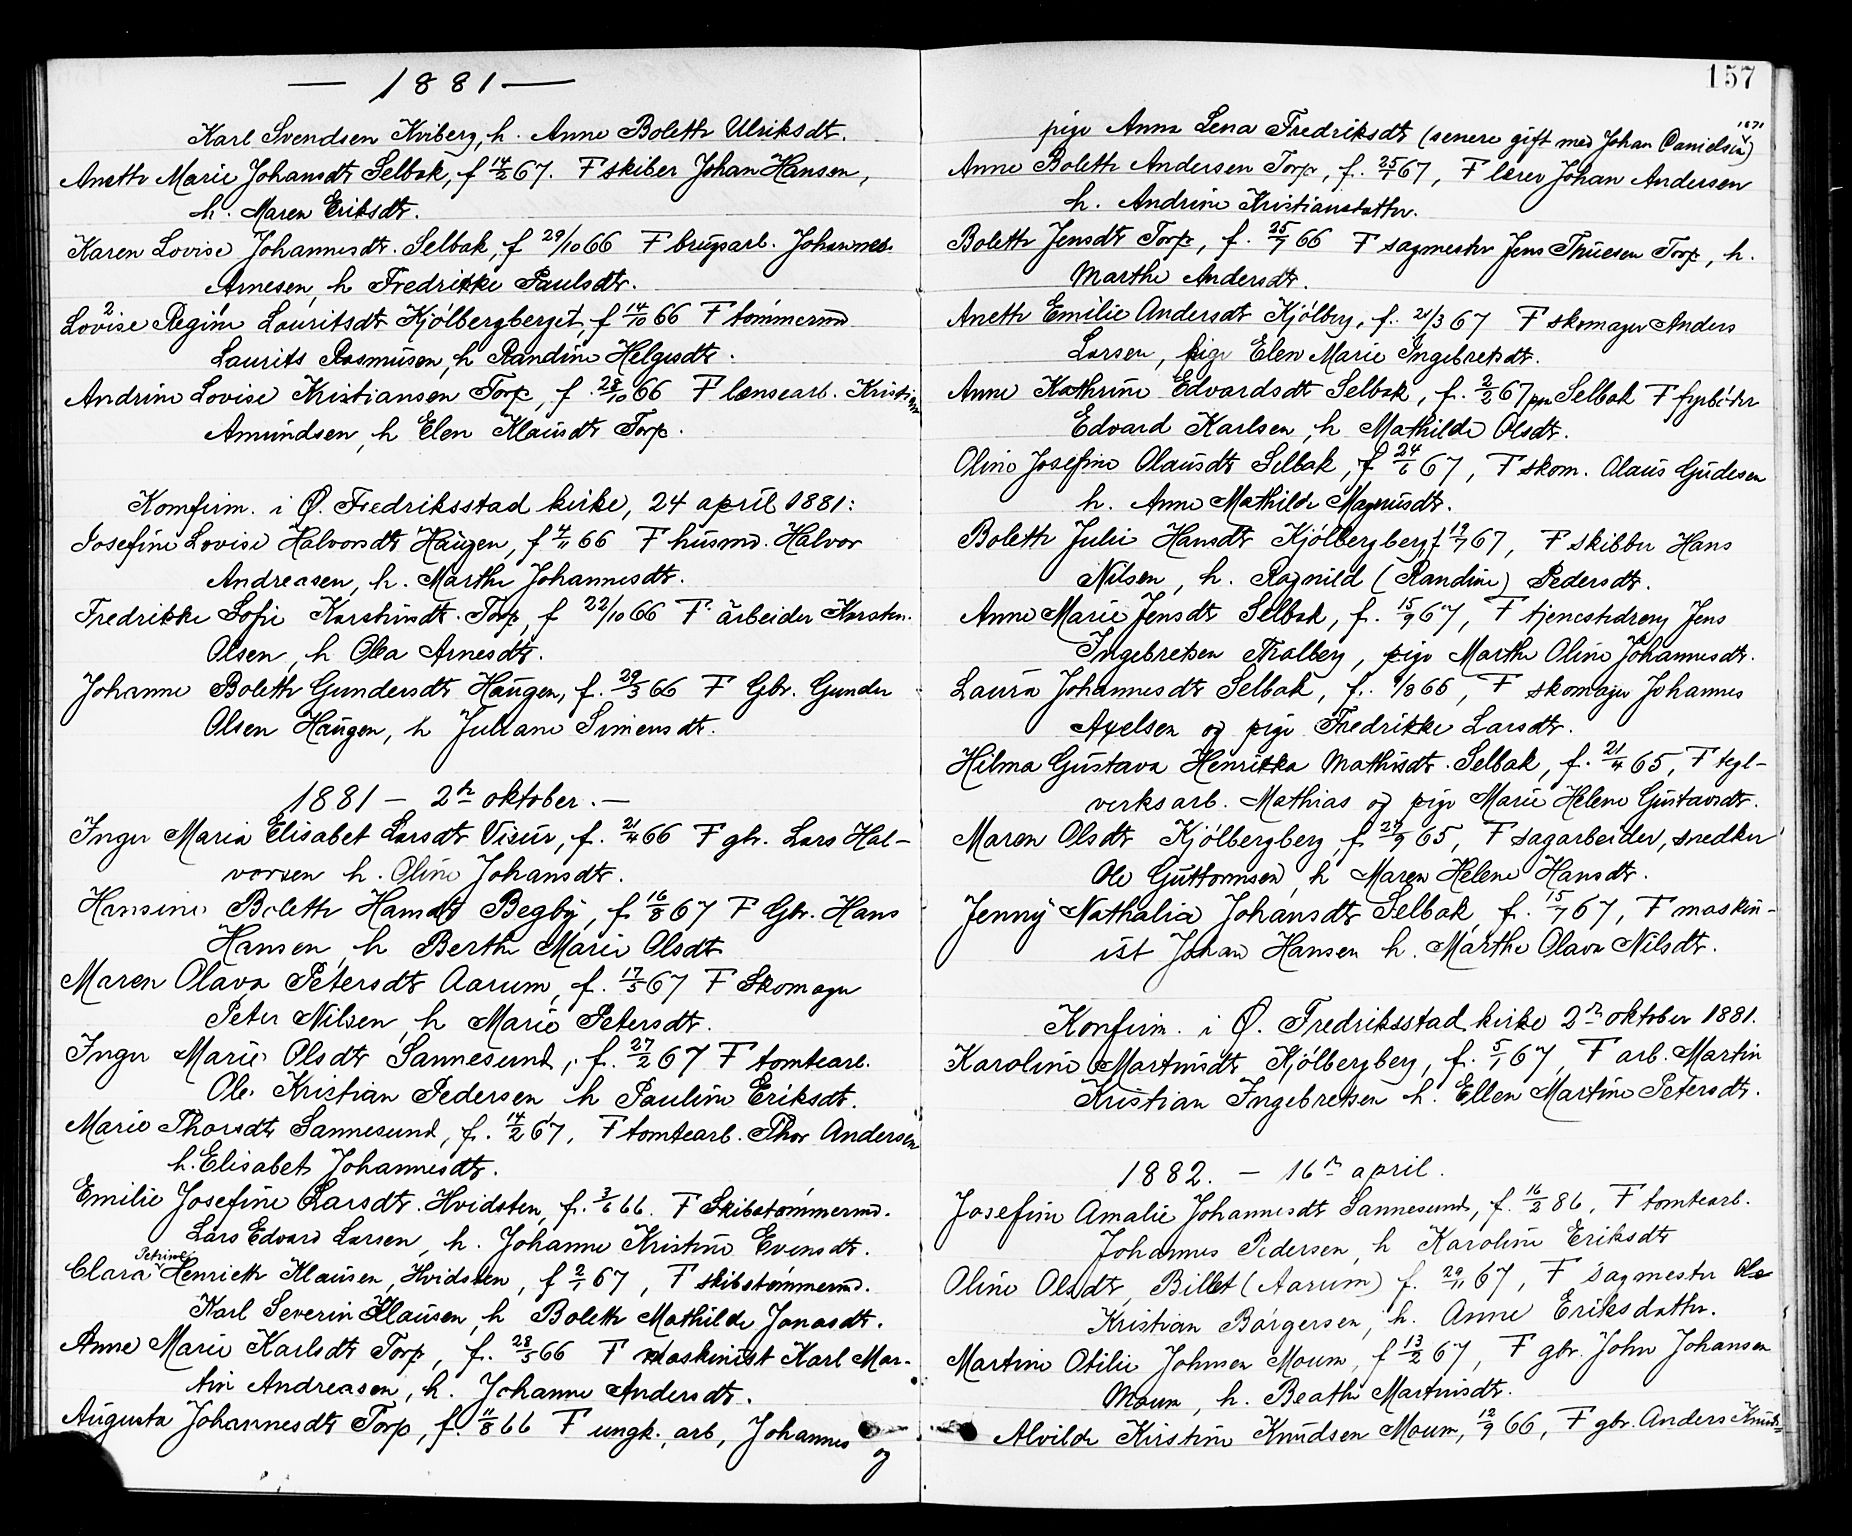 — 1881 —
Karl Svendsen Kviberg, h. Anne Bolette Ulriksdtr.
Anette Marie Johansdtr Selbak, f 14/2 67. F skiber Johan Hansen,
h. Maren Eriksdtr.
Karen Lovise Johannesdtr. Selbak, f 29/10 66 F brugsarb. Johannes
Arnesen, h Fredrikke Paulsdtr.
Lovise Regine Lauritsdtr Kjölbergberget, f 14/10 66 F tömmermd
Laurits Rasmusen, h Randine Helgesdtr.
Andrine Lovise Kristiansen Torp, f. 28/10 66 F lensearb. Kristian
Amundsen, h Elen Klausdtr Torp.
Komfirm. i Ø. Fredriksstad kirke, 24 april 1881:
Josefine Lovise Halvorsdtr Haugen, f 4/11 66 F husmd. Halvor
Andreasen, h. Marthe Johannesdtr.
Fredrikke Sofie Karstensdtr. Torp, f 22/10 66 F. arbeider Karsten
Olsen, h Olea Arnesdtr.
Johanne Bolette Gundersdtr Haugen, f. 29/3 66 F Gbr. Gunder
Olsen Haugen, h Juliane Simensdtr.
1881 — 2n oktober. —
Inger Maria Elisabet Larsdtr Visur, f. 21/4 66 F gbr. Lars Hal-
vorsen h. Oline Johansdtr.
Hansine Bolette Hansdtr Begby, f. 16/8 67 F Gbr. Hans
Hansen, h Berthe Marie Olsdtr
Maren Olava Petersdtr Aarum, f. 17/5 67 F Skomager
Peter Nilsen, h Marie Petersdtr.
Inger Marie Olsdtr Sannesund, f. 27/2 67 F tomtearb.
Ole Kristian Pedersen h Pauline Eriksdtr.
Marie Thorsdtr Sannesund, f. 14/2 67, F tomtearb. Thor Andersen
h. Elisabet Johannesdtr.
Emilie Josefine Larsdtr. Hvidsten, f. 3/6 66. F Skibstömmermd.
Lars Edvard Larsen, h. Johanne Kristine Evensdtr.
Clara Petrine Henriette Klausen, Hvidsten, f 2/1 67, F skibstömmermd.
Karl Severin Klausen, h Bolette Mathilde Jonasdtr.
Anne Marie Karlsdtr Torp, f. 28/5 66 F maskinist Karl Mar-
tin Andreasen, h. Johanne Andersdtr.
Augusta Johannesdtr Torp, f. 11/8 66 F ungk., arb, Johannes
og
157
pige Anna Lena Fredriksdtr (senere gift med Johan Danielsen 1871)
Anne Bolette Andersen Torp, f. 25/1 67, F lærer Johan Andersen
h. Andrine Kristiansdatter.
Bolette Jensdtr Torp, f. 25/7 66 F sagmester Jens Thuesen Torp, h.
Marthe Andersdtr.
Anette Emilie Andersdtr Kjölberg, f. 21/3 67 F skomager Anders
Larsen, pige Elen Marie Ingebretsdtr.
Anne Kathrine Edvardsdtr Selbak, f. 2/2 67 paa Selbak F fyrböder
Edvard Karlsen, h Mathilde Olsdtr.
Oline Josefine Olausdtr Selbak, f 24/6 67, F skom. Olaus Gudesen
h. Anne Mathilde Magnusdtr.
Bolette Julie Hansdtr Kjölbergberg, f 19/7 67, F skibber Hans
Nilsen, h. Ragnild (Randine) Pedersdtr.
Anne Marie Jensdtr Selbak, f. 15/9 67, F tjenestedreng Jens
Ingebretsen Tralberg, pige Marthe Oline Johannesdtr.
Laura Johannesdtr Selbak, f. 9/8 66, F skomager Johannes
Axelsen og pige Fredrikke Larsdtr.
Hilma Gustava Henrikka Mathisdtr. Selbak, f. 21/4 65, F tegl-
verksarb. Mathias og pige Marie Helene Gustavsdtr.
Maren Olsdtr Kjölbergberg, f 24/9 65, F sagarbeider, snedker
Ole Guttormsen, h Maren Helene Hansdtr.
Jenny Nathalia Johansdtr Selbak, f. 15/7 67, F maskin-
ist Johan Hansen h. Marthe Olava Nilsdtr.
Konfirm. i Ø. Fredriksstad kirke 2n oktober 1881.
Karoline Martinsdtr Kjölbergberg, f. 5/1 67, F arb. Martin
Kristian Ingebretsen h. Ellen Martine Petersdtr.
1882. — 16n april.
Josefine Amalie Johannesdtr Sannesund, f. 16/2 86, F tomtearb.
Johannes Pedersen, h Karoline Eriksdtr
Oline Olsdtr, Billet (Aarum) f. 29/11 67, F sagmester Ole
Kristian Börgersen, h. Anne Eriksdatter.
Martine Otilie Johnsen Moum, f 13/2 67, F gbr. John Johansen
Moum, h. Beathe Martinsdtr.
Alvilde Kirstine Knudsen Moum, 12/9 66, F gbr. Anders Knud-